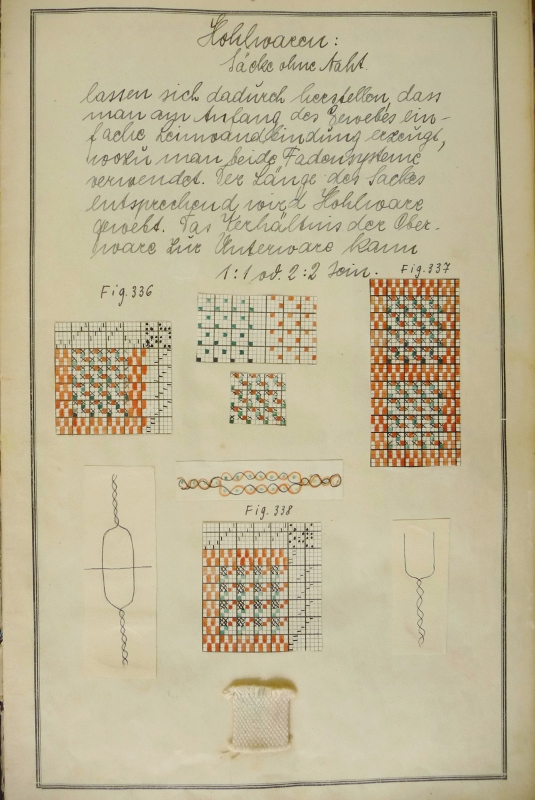 Hohlwaren:
Säcke ohne Naht
lassen sich dadurch herstellen, dass
man am Anfang des Gewebes ein-
fache Leinwandbindung erzeugt,
wozu man beide Fadensysteme
verwendet. Der Länge des Sackes
entsprechend wird Hohlware
gewebt. Das Verhältnis der Ober-
ware zur Unterware kann
1:1 od. 2:2 sein.
Fig. 337
Fig. 336
Fig. 338